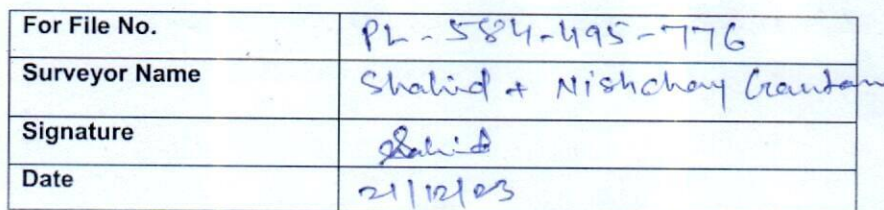 For File No. PL-584-495-776
Surveyor Name Shahid + Nishchay Gautam
Signature Sahid
Date 21/12/23